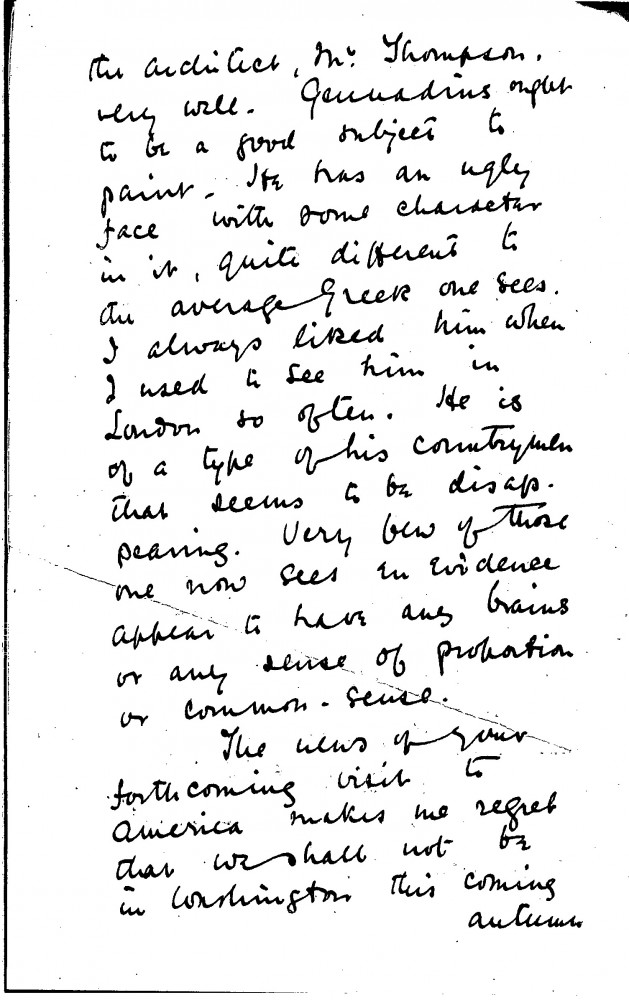 the architect, Mr Thompson.
very well. Gennadius ought
to be a good subject to
paint. He has an ugly
face with some character
in it, quite different to
the average Greek one sees.
I always liked him when
I used to see him in
London so often. He is
of a type of his countrymen
that seems to be disap-
pearing. Very few of those
one now sees in evidence
appear to have any brains
or any sense of proportion
or common-sense.
The news of your
forthcoming visit to
America makes me regret
that we shall not be
in Washington this coming
autumn